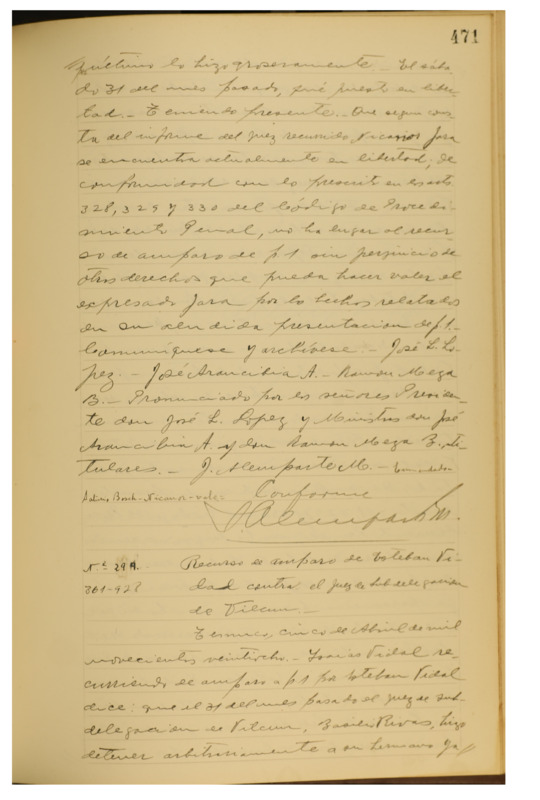 471
último lo hizo groseramente - El sába-
do 31 del mes pasado, fué puesto en liber-
tad. - Teniendo presente - Que segun cons-
ta del informe del juez recurrido Nicanor Jara
se encuentra actualmente en libertad, de
conformidad con lo prescrito en los arts
328, 329 y 330 del Código de Procedi-
miento Penal, no ha lugar al recur-
so de amparo de f 1 sin perjuicio de
otros derechos que pueda hacer valer el
expresado Jara por los hechos relatados
en su aludida presentacion de f. 1. -
Comuníquese y archívese. - José L. Lo-
pez. - José Arancibia A. - Ramon Meza
B. - Pronunciado por los señores Presiden-
te don José L. Lopez y Ministros don José
Arancibia A. y don Ramon Meza B., ti-
tulares. - J. Alemparte M. -
Nicanor - vale.
Conforme
J. Alemparte M.
Nº 29 A. Recurso de amparo de Esteban Vi-
361-928 dal contra el juez de subdelegacion
de Vilcun. -
Temuco, cinco de Abril de mil
novecientos veintiocho. - Isaías Vidal re-
curriendo de amparo a f 1 por Esteban Vidal
dice: que el 31 del mes pasado el juez de sub-
delegacion de Vilcun, Rivas, hizo
detener arbitrariamente a su hermano ya